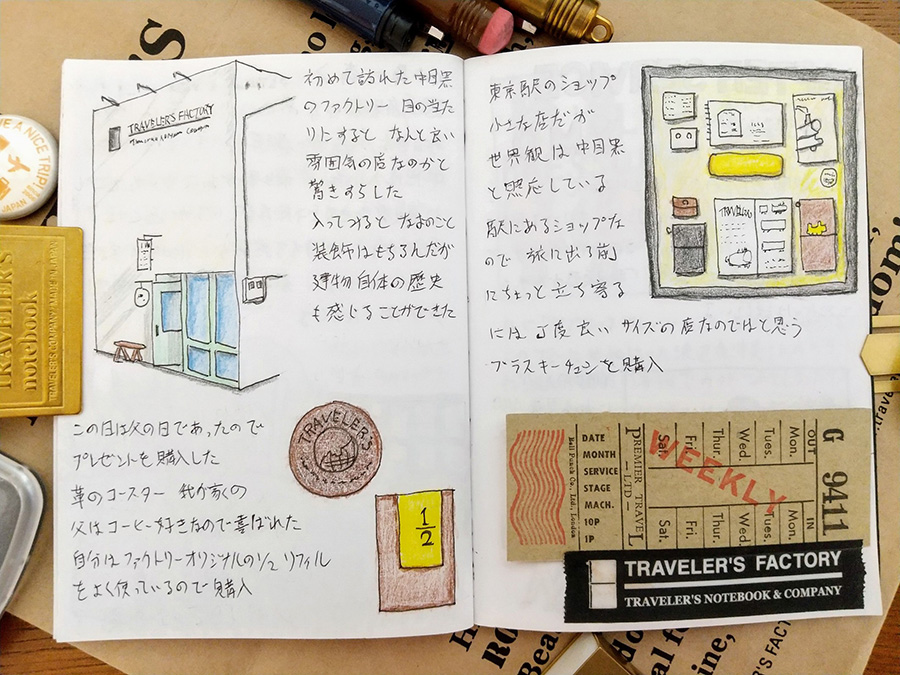 TRAVELER'S FACTORY
初めて訪れた中目黒
のファクトリー 目の当た
りにすると なんと良い
雰囲気の店なのかと
驚きすらした
入ってみると なまのこと
装飾はもちろんだが
建物自体の歴史
も感じることができた
この日は父の日であったので
プレゼントを購入した
革のコースター 我が家の
父はコーヒー好きなので喜ばれた
自分はファクトリーオリジナルの リフィル
をよく使っているので購入
TRAVELER'S
1/2
東京駅のショップ
小さな店だが
世界観は中目黒
と照応している
駅にあるショップな
ので 旅に出る前
にちょっと立ち寄る
には丁度良い サイズの店なのではと思う
ブラスキーチェンを購入
G 9411
OUT
IN
Mon.
Tues.
Wed.
Thur.
Fri.
Sat.
Mon.
Tues.
Wed.
Thur.
Fri.
Sat.
WEEKLY
PREMIER TRAVEL
— LTD —
DATE
MONTH
SERVICE
STAGE
MACH.
10P
1P
Bell Punch Co., Ltd., London
TRAVELER'S FACTORY
TRAVELER'S NOTEBOOK & COMPANY
A NICE TRIP!!
JAPAN
TRAVELER'S
notebook
TRAVELER'S COMPANY MADE IN JAPAN